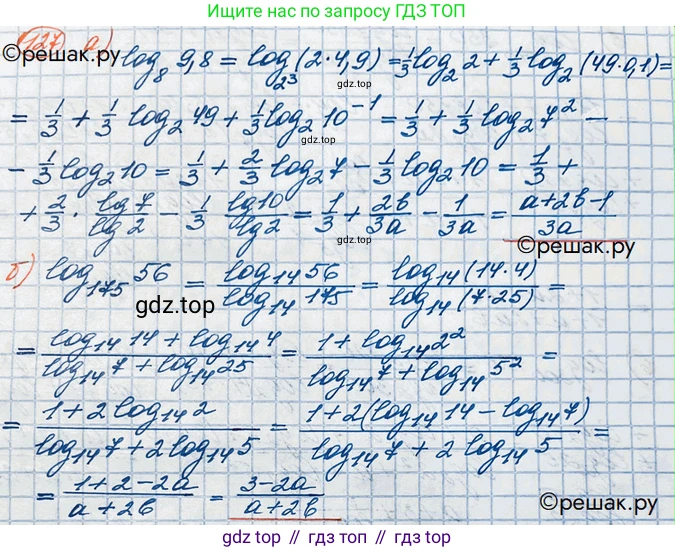 Ищите по запросу ГДЗ ТОП
127 а) log₈ 9,8 = log₂³ (2·4,9) = 1/3 log₂ 2 + 1/3 log₂ (49·0,1) =
©решак.ру
гдз top
= 1/3 + 1/3 log₂ 49 + 1/3 log₂ 10⁻¹ = 1/3 + 1/3 log₂ 7² −
− 1/3 log₂ 10 = 1/3 + 2/3 log₂ 7 − 1/3 log₂ 10 = 1/3 +
+ 2/3 · lg 7/lg 2 − 1/3 lg 10/lg 2 = 1/3 + 2b/3a − 1/3a = (a+2b−1)/3a
гдз top
©решак.ру
б) log₁₇₅ 56 = log₁₄ 56/log₁₄ 175 = log₁₄ (14·4)/log₁₄ (7·25) =
гдз top
= (log₁₄ 14 + log₁₄ 4)/(log₁₄ 7 + log₁₄ 25) = (1 + log₁₄ 2²)/(log₁₄ 7 + log₁₄ 5²) =
= (1 + 2 log₁₄ 2)/(log₁₄ 7 + 2 log₁₄ 5) = (1 + 2(log₁₄ 14 − log₁₄ 7))/(log₁₄ 7 + 2 log₁₄ 5) =
= (1+2−2a)/(a+2b) = (3−2a)/(a+2b)
©решак.ру
гдз top
отсюда // гдз.top // отсюда